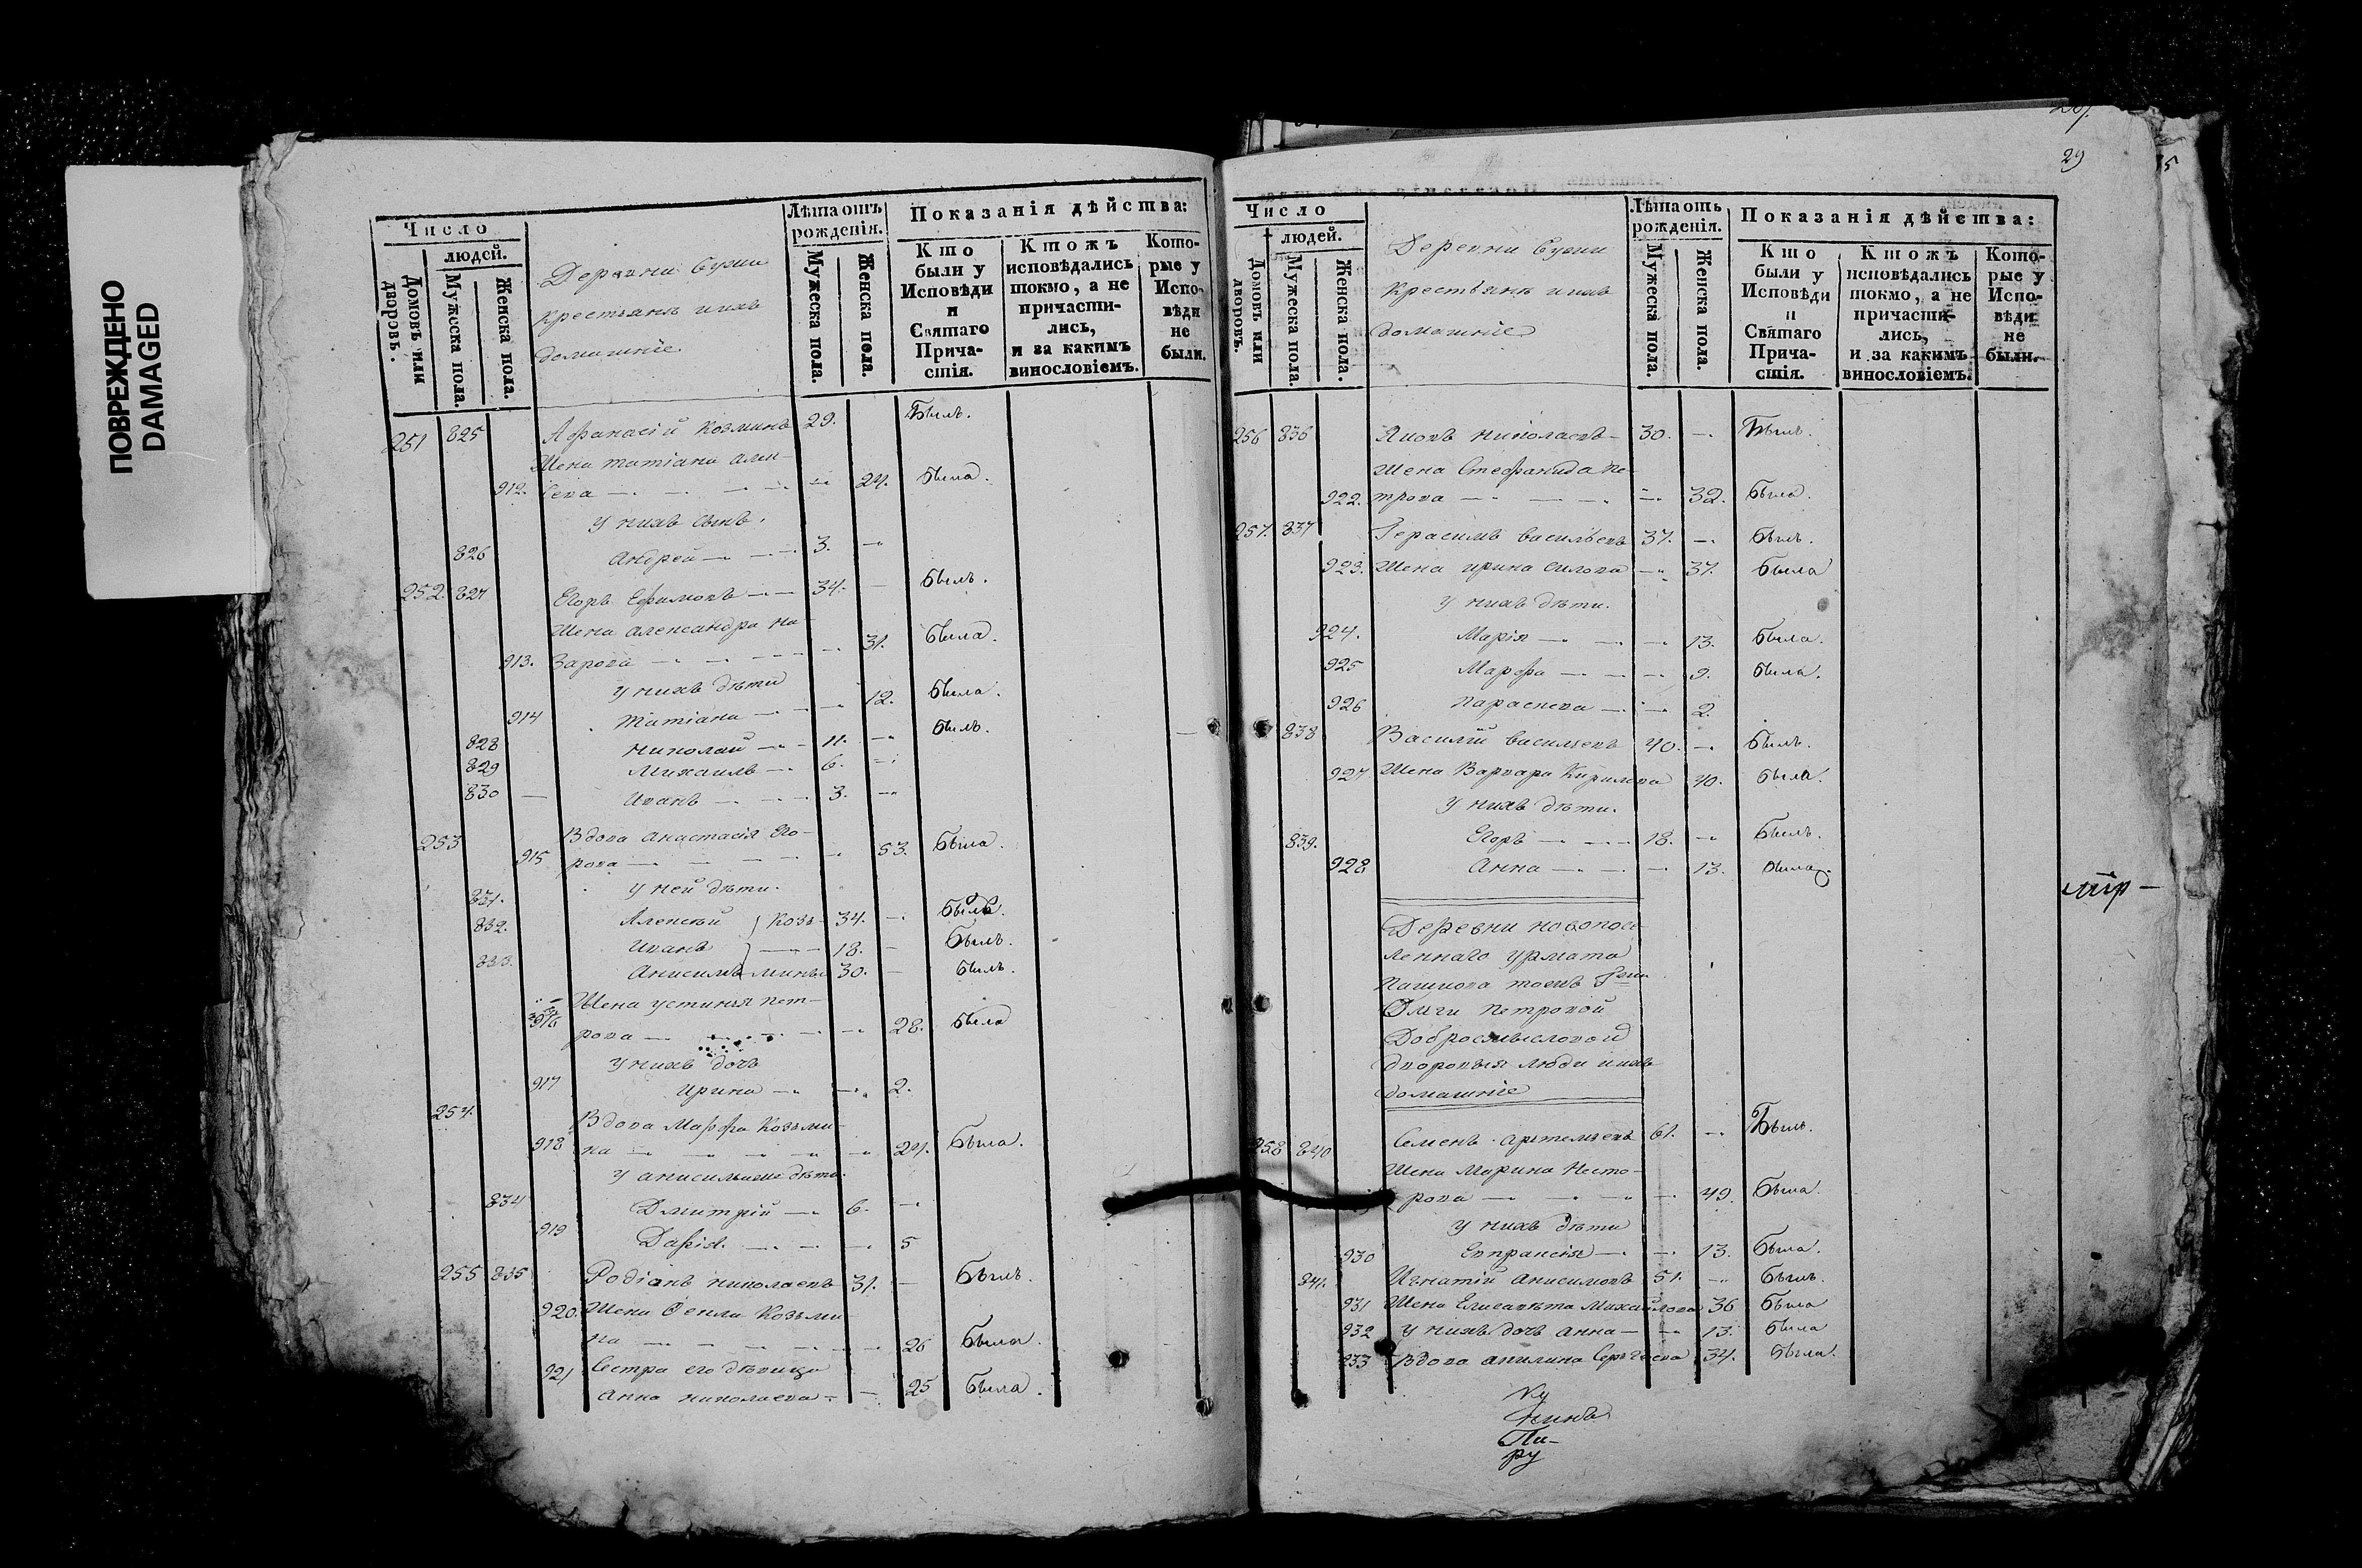 ПОВРЕЖДЕНО
DAMAGED
Число
людей.
Домовъ или дворовъ.
Мужеска пола.
Женска пола.
Деревни Сухи
крестьянъ ихъ
домашніе
Лѣта отъ рожденія.
Мужеска пола.
Женска пола.
Показанія дѣйства:
Кто были у Исповѣди и Святаго Причастія.
Ктожъ исповѣдались токмо, а не причастились, и за какимъ винословіемъ.
Которые у Исповѣди не были.
251 825 Афанасій Козминъ 29. Былъ.
Жена Татіана Алек-
912. сева 24. Была.
У нихъ сынъ.
826 Андрей 3.
252. 827 Егоръ Ефимовъ 34. Былъ.
Жена Александра На-
913. зарова 31. Была.
У нихъ дѣти
914 Татіана 12. Была.
828 Николай 11. Былъ.
829 Михаилъ 6.
830 Иванъ 3.
253 Вдова Анастасія Его-
915 рова 53. Была.
У ней дѣти.
831. Алексѣй Козь- 34. Былъ.
832. Иванъ 18. Былъ.
833. Анисимъ мины 30. Былъ.
Жена Устинья Пет-
916 рова 28. Была
У нихъ дочь
917 Ирина 2.
254. Вдова Марфа Козьми-
918 на 24. Была.
У дѣти.
834 Дмитрій 6.
919 Дарія. 5
255 835 Родіонъ Николаевъ 31. Былъ.
920. Жена Фекла Козьми-
на 26 Была.
921 Сестра его дѣвица
Анна Николаева 25 Была.
29
Число
людей.
Домовъ или дворовъ.
Мужеска пола.
Женска пола.
Деревни Сухи
крестьянъ ихъ
домашніе
Лѣта отъ рожденія.
Мужеска пола.
Женска пола.
Показанія дѣйства:
Кто были у Исповѣди и Святаго Причастія.
Ктожъ исповѣдались токмо, а не причастились, и за какимъ винословіемъ.
Которые у Исповѣди не были.
256 836 Яковъ Николаевъ 30. Былъ.
Жена Стефанида Пе-
922. трова 32. Была.
257. 837 Герасимъ Васильевъ 37. Былъ.
923. Жена Ирина Силова 37. Была
У нихъ дѣти.
924. Марія 13. Была.
925 Марфа 9. Была.
926 Параскева 2.
838 Василій Васильевъ 40. Былъ.
927 Жена Варвара Кирилова 40. Была.
У нихъ дѣти.
839. Егоръ 18. Былъ.
928 Анна 13. Была.
Деревни новопосе-
леннаго Урмата
Пашкова тожъ Гжи
Ольги Петровой
Добросмысловой
дворовыя люди и ихъ
домашніе
258 840 Семенъ Артемьевъ 61. Былъ.
Жена Марина Несто-
рова 49. Была.
У нихъ дѣти
930 Евпраксія 13. Была.
841. Игнатій Анисимовъ 51. Былъ.
931 Жена Елисавета Михайлова 36 Была
932 У нихъ дочь Анна 13. Была
933 Вдова Акилина Сергѣева 34. Была.